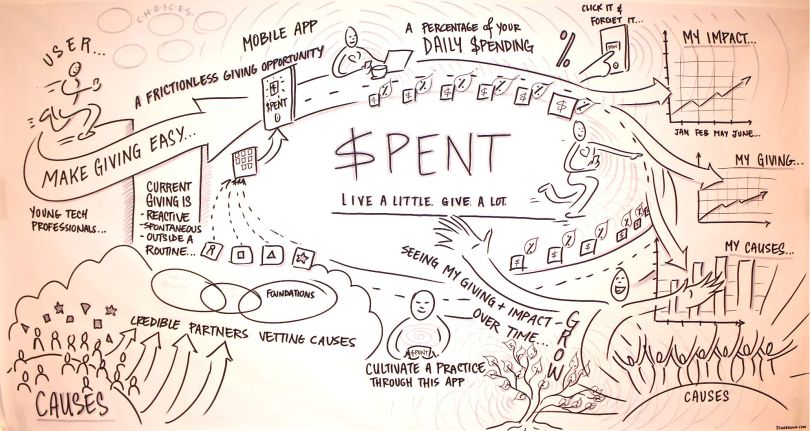 CHOICES
USER...
MOBILE APP
A FRICTIONLESS GIVING OPPORTUNITY
$PENT
A PERCENTAGE of YOUR
DAILY $PENDING
%
CLICK IT &
FORGET IT...
MY IMPACT...
JAN FEB MAY JUNE...
MAKE GIVING EASY...
YOUNG TECH
PROFESSIONALS...
CURRENT
GIVING IS
- REACTIVE
- SPONTANEOUS
- OUTSIDE A
ROUTINE...
$PENT
LIVE A LITTLE. GIVE A LOT.
MY GIVING...
MY CAUSES...
SEEING MY GIVING + IMPACT
OVER TIME...
- GROW
FOUNDATIONS
CREDIBLE PARTNERS VETTING CAUSES
$PENT
CULTIVATE A PRACTICE
THROUGH THIS APP
CAUSES
CAUSES